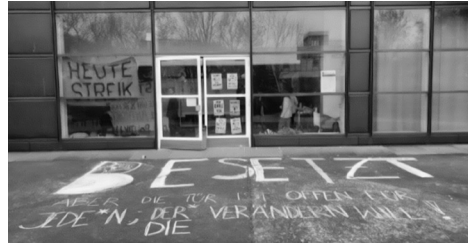 HEUTE
STREIK
BESETZT
ABER DIE TÜR IST OFFEN FÜR
JEDE*N, DER* VERÄNDERN WILL!
DIE